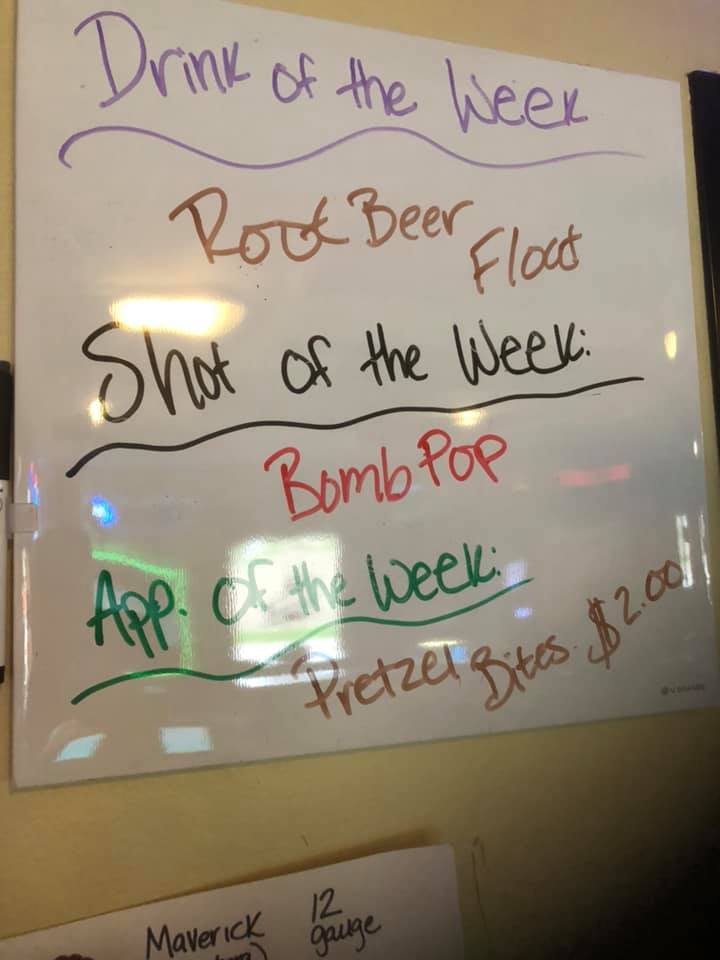 Drink of the Week
Root Beer Float
Shot of the Week:
Bomb Pop
App. of the Week:
Pretzel Bites. $2.00
Maverick 12 gauge